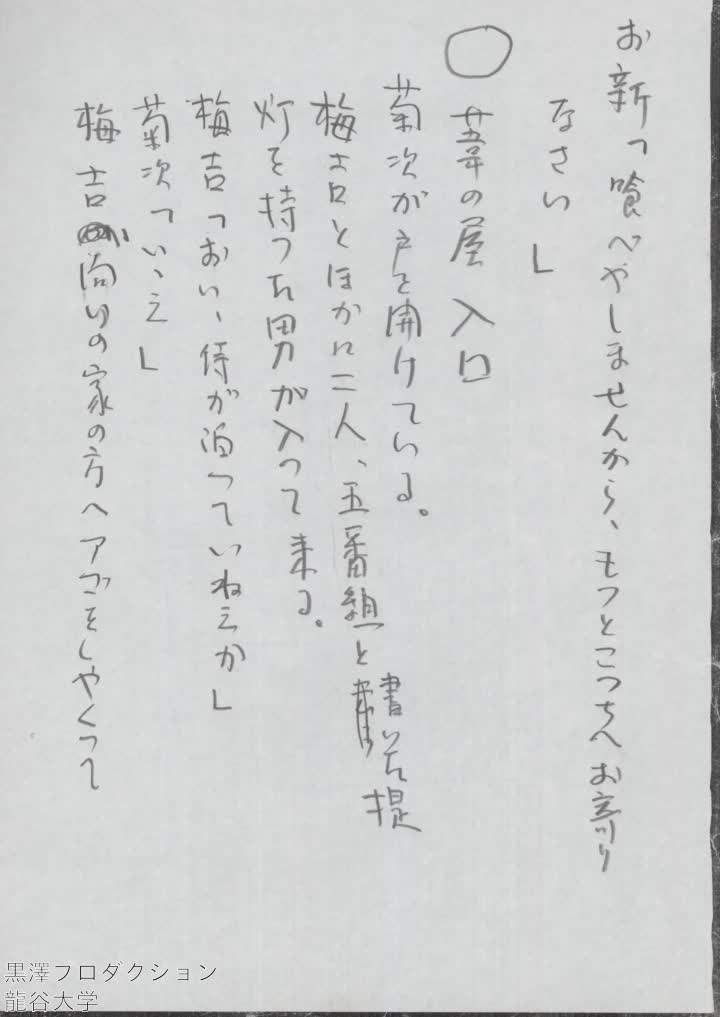 お新「喰べやしませんから、もつとこつちへお寄り
なさい」
○ 葦の屋 入口
菊次が戸を開けている。
梅吉とほかに二人、五番組と書いた提
灯を持つた男が入つて来る。
梅吉「おい、侍が泊つていねえか」
菊次「いゝえ」
梅吉が向いの家の方へアゴをしやくつて
黒澤プロダクション
龍谷大学